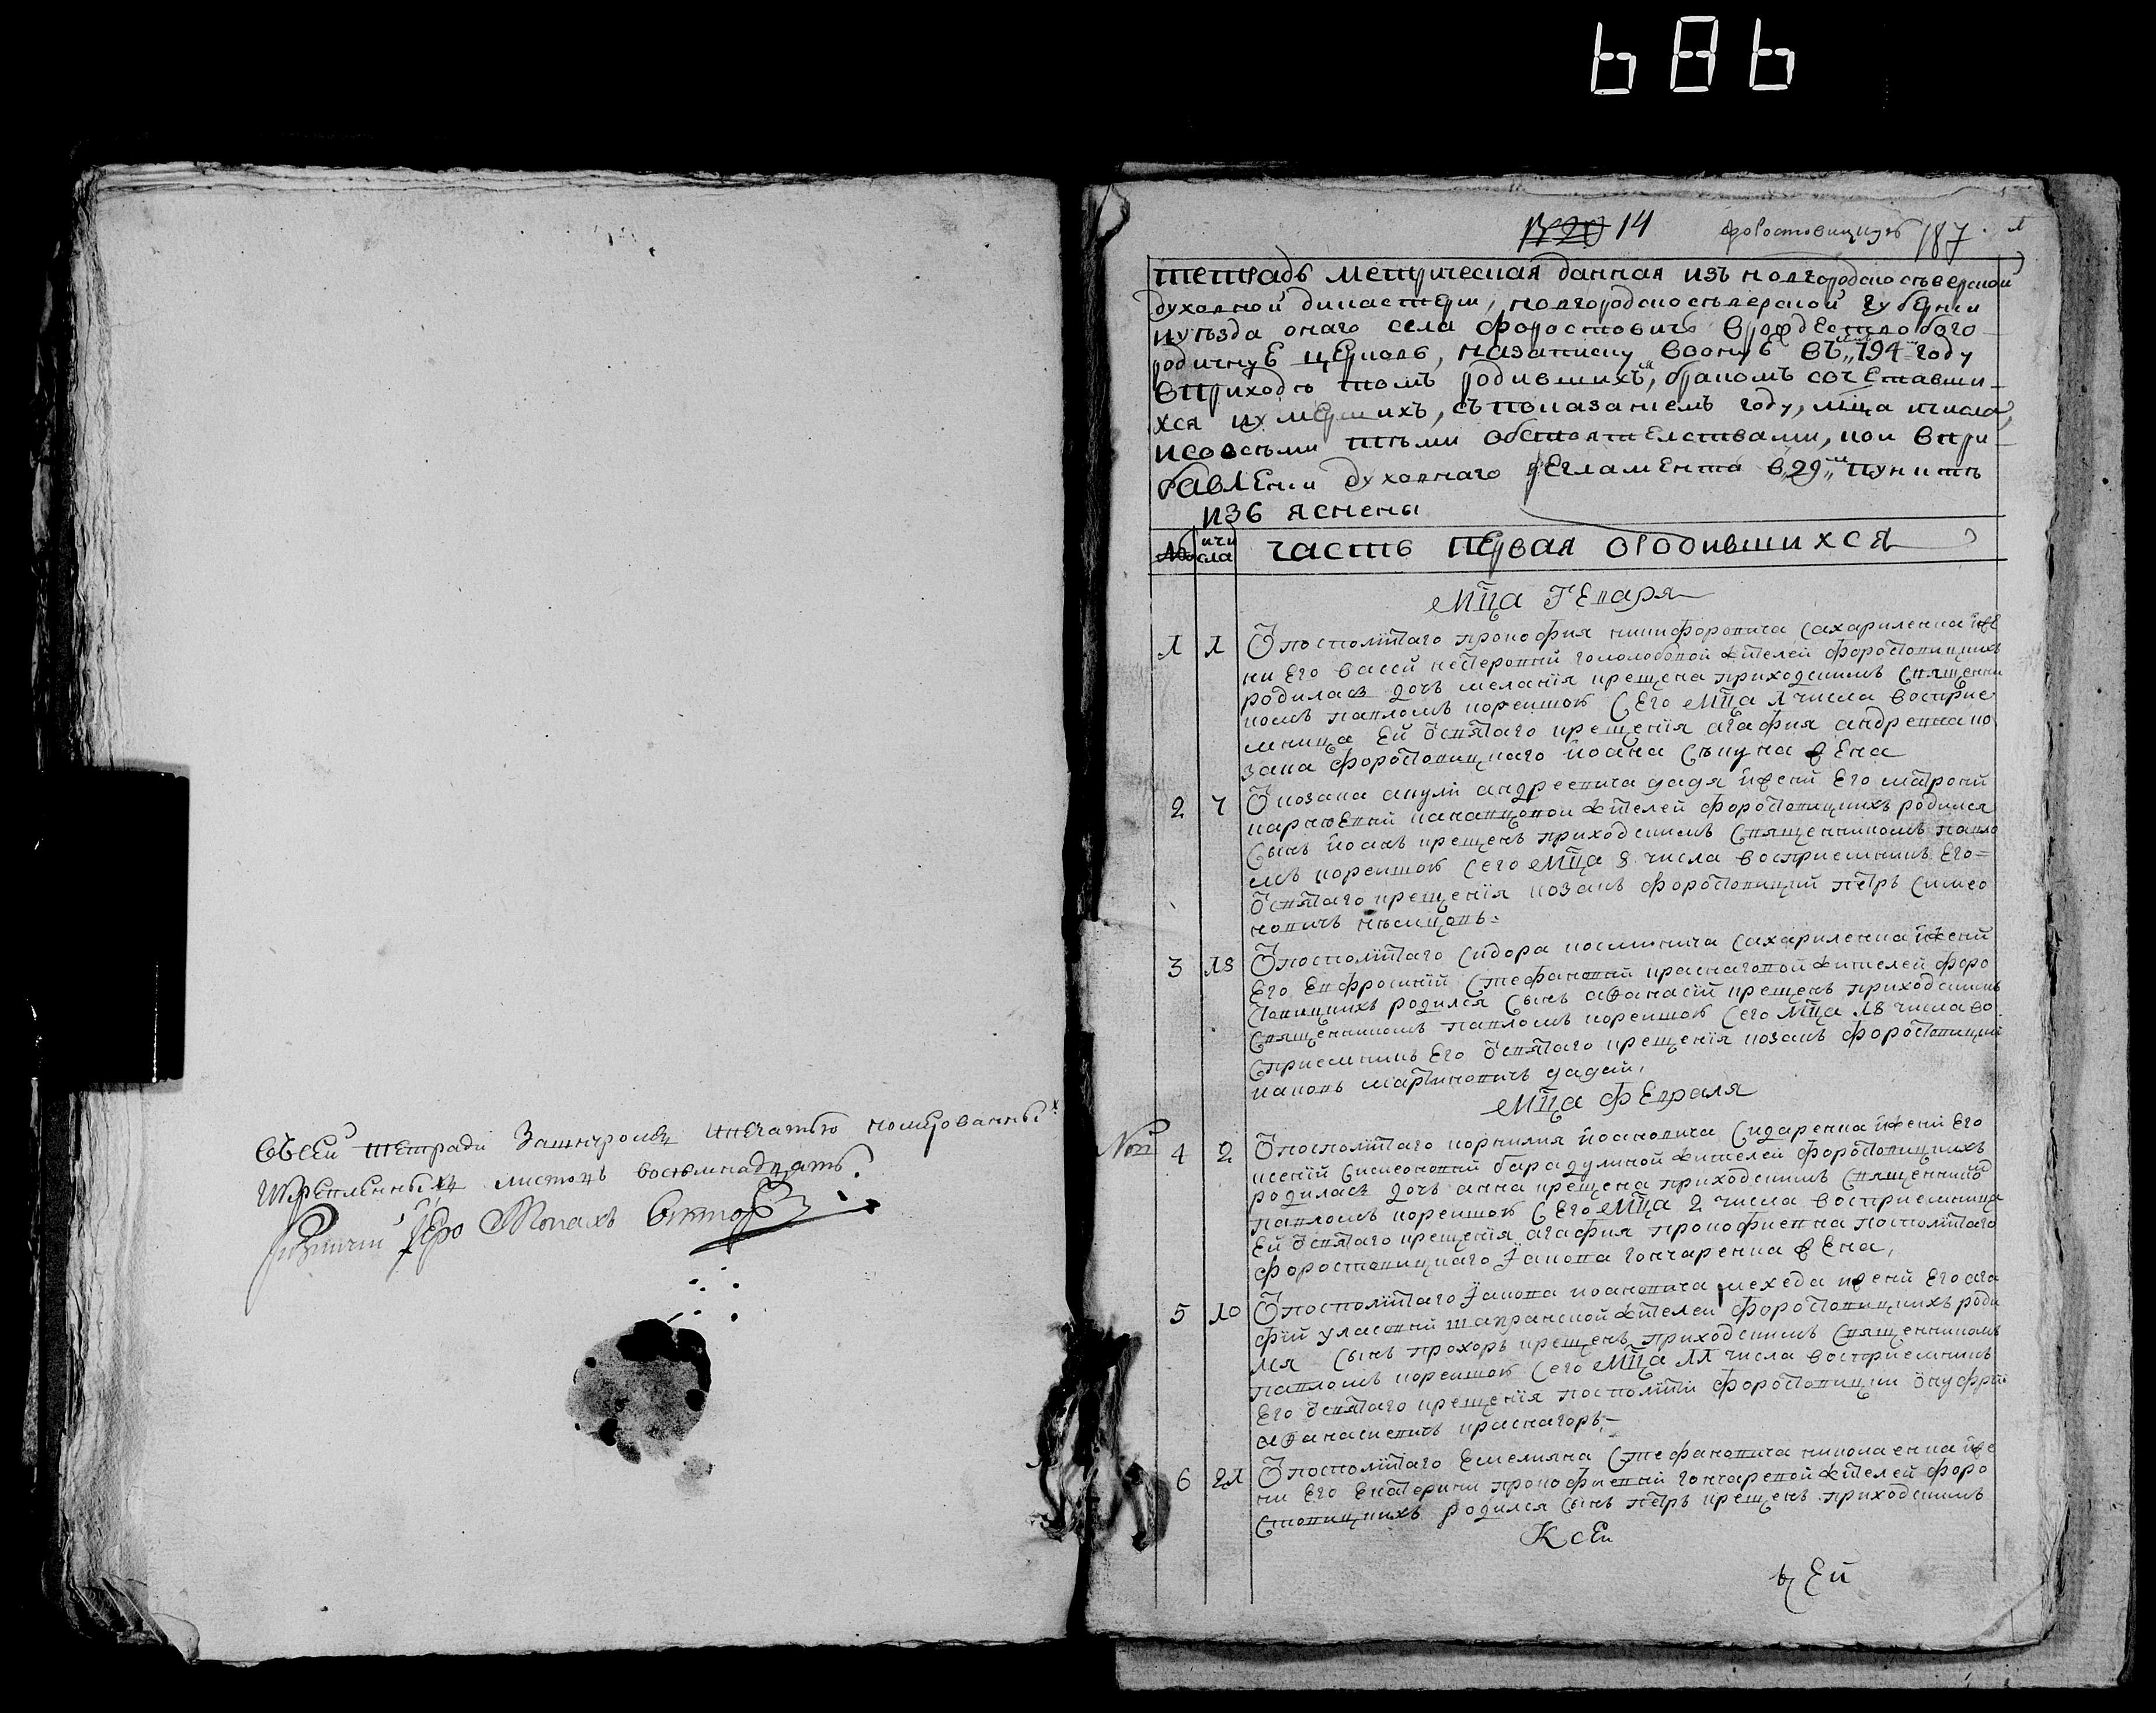 686
14 Форостовицкъ 187
Тетрадь метрическая данная изъ новгородско сѣверской
духовной дикастерии, новгородско сѣверской губернии
и уѣзда онаго села Форостовичь в рождество бого
родичную церковь, на записку во оную въ 794 году
в приходѣ томъ родившихъ, бракомъ сочетавши-
хся и умершихъ, съ показаниемъ году, мца и числа,
и со всѣми тѣми обстоятелствами, кои в при-
бавлении духовнаго регламента в 29 пунктѣ
изъяснены
№ и чи сла Часть первая о родившихся
Мца Генваря
1 1 Ѿ посполитаго прокофия никифоровича сахариленка и же
ни его васси нестеровни гололобовой жителей форостовицкихъ
родилась дочь мелания крещена приходскимъ священни
комъ павломъ корейшою сего мца 1 числа восприе
мница ей ѿ святаго крещения агафия андреевна ко
зака форостовицкаго иоана сѣкуна жена
2 7 Ѿ козака акули андреевича дадя и жени его матрони
карповни жителей форостовицкихъ родился
сынъ иоанъ крещенъ приходскимъ священникомъ павло
мъ корейшою сего мца 8 числа восприемникъ его=
ѿ святаго крещения козакъ форостовицкий петръ симео
новичъ нѣмцовъ=
3 18 Ѿ посполитаго сидора козминича сахариленка и жени
его евфросинии стефановни краснаговой жителей форо
стовицкихъ родился сынъ афанасий крещенъ приходскимъ
священникомъ павломъ корейшою сего мца 18 числа во
сприемникъ его ѿ святаго крещения козакъ форостовицкий
яковъ мартиновичъ дадай,
Мца Февраля
4 2 Ѿ посполитаго корнилия иоановича сидаренка и жени его
ксении симеоновни барадулиной жителей форостовицкихъ
родилась дочь анна крещена приходскимъ священникомъ
павломъ корейшою сего мца 2 числа восприемница
ей ѿ святаго крещения агафия прокофиевна посполитаго
форостовицкаго якова гончаренка жена,
5 10 Ѿ посполитаго якова иоановича мехеда и жени его ага
фии уласовни шапранской жителей форостовицкихъ роди
лся сынъ прохоръ крещенъ приходскимъ священникомъ
павломъ корейшою сего мца 11 числа восприемникъ
его ѿ святаго крещения посполитий форостовицкий онуфрий
афанасиевичъ краснагоръ,-
6 21 Ѿ посполитаго емелияна стефановича николаенка и же
ни его екатерини прокофиевни гончаревой жителей форо
стовицкихъ родился сынъ петръ крещенъ приходскимъ
К сей
въ сей тетради зашнурован печатью номерованных
и скрепленных листовъ восемнадцать.
Ризничий Iеромонахъ Викторъ